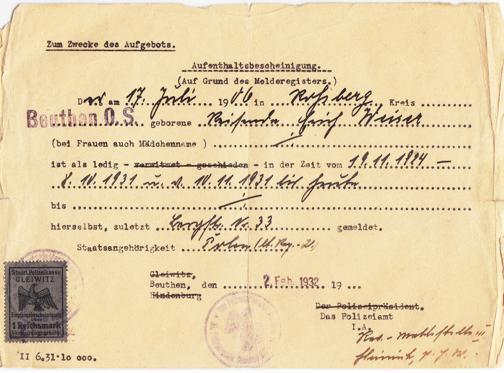 Zum Zwecke des Aufgebots.
Aufenthaltsbescheinigung.
(Auf Grund des Melderegisters.)
Der am 17. Juli 1906 in Rossberg Kreis
Beuthen O.S. geborene Reisende Erich Weiser
(bei Frauen auch Mädchenname)
ist als ledig - verwitwet - geschieden - in der Zeit vom 19.11.1924 -
8.10.1931 u. v. 10.11.1931 bis heute
bis
hierselbst, zuletzt Bergstr. Nr. 33 gemeldet.
Staatsangehörigkeit Polen
Gleiwitz,
Beuthen, den 2. Feb. 1932 19
Hindenburg
Der Polizeipräsident.
Das Polizeiamt
I.A.
Staatl. Polizeikasse
GLEIWITZ
1 Reichsmark
II 6.31.10 000.